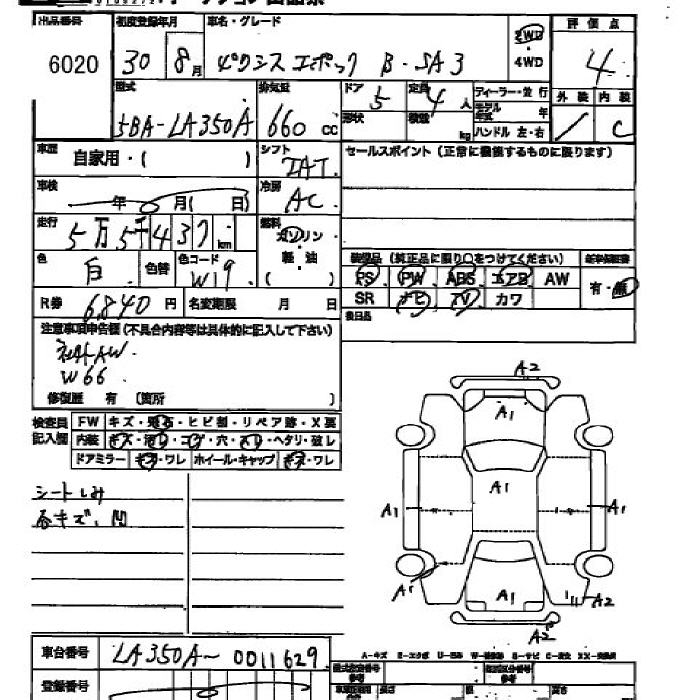 出品番号 初度登録年月 車名・グレード 評価点
6020 30 8月 ピクシスエポック B・SA3 2WD・4WD 4
型式 排気量 ドア 定員 ディーラー・並行 外装 内装
5BA-LA350A 660cc 5 4人 モデル年式 年 C
形状 積載 kg ハンドル 左・右
車歴 自家用・( ) シフト IAT セールスポイント(正常に機能するものに限ります)
車検 年 月( 日) 冷房 AC
走行 5万5千437km 燃料 ガソリン
色 白 色替 色コード W19 軽・油 ( )
装備品(純正品に限り○をつけてください)
PS PW ABS エアB AW 有・無
SR ナビ TV カワ
R券 6,840円 名変期限 月 日 後日品
注意事項申告欄(不具合内容等は具体的に記入して下さい)
社外AW
W66
修復歴 有 (箇所 )
検査員記入欄 FW キズ・飛石・ヒビ割・リペア跡・X要
内装 キズ・汚レ・コゲ・穴・スレ・ヘタリ・破レ
ドアミラー キズ・ワレ ホイール・キャップ キズ・ワレ
シートしみ
各キズ、凹
A2
A1
A1
A1 A1
A1 A1 A2
A2
車台番号 LA350A-0011629
登録番号